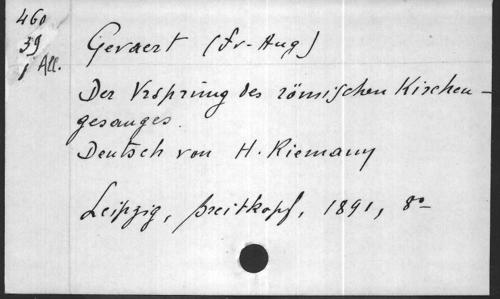 460
39
1 All.
Gevaert (Fr-Aug)
Der Vrsprung des römischen Kirchen-
gesanges.
Deutsch von H. Riemann
Leipzig, Breitkopf, 1891, 8º